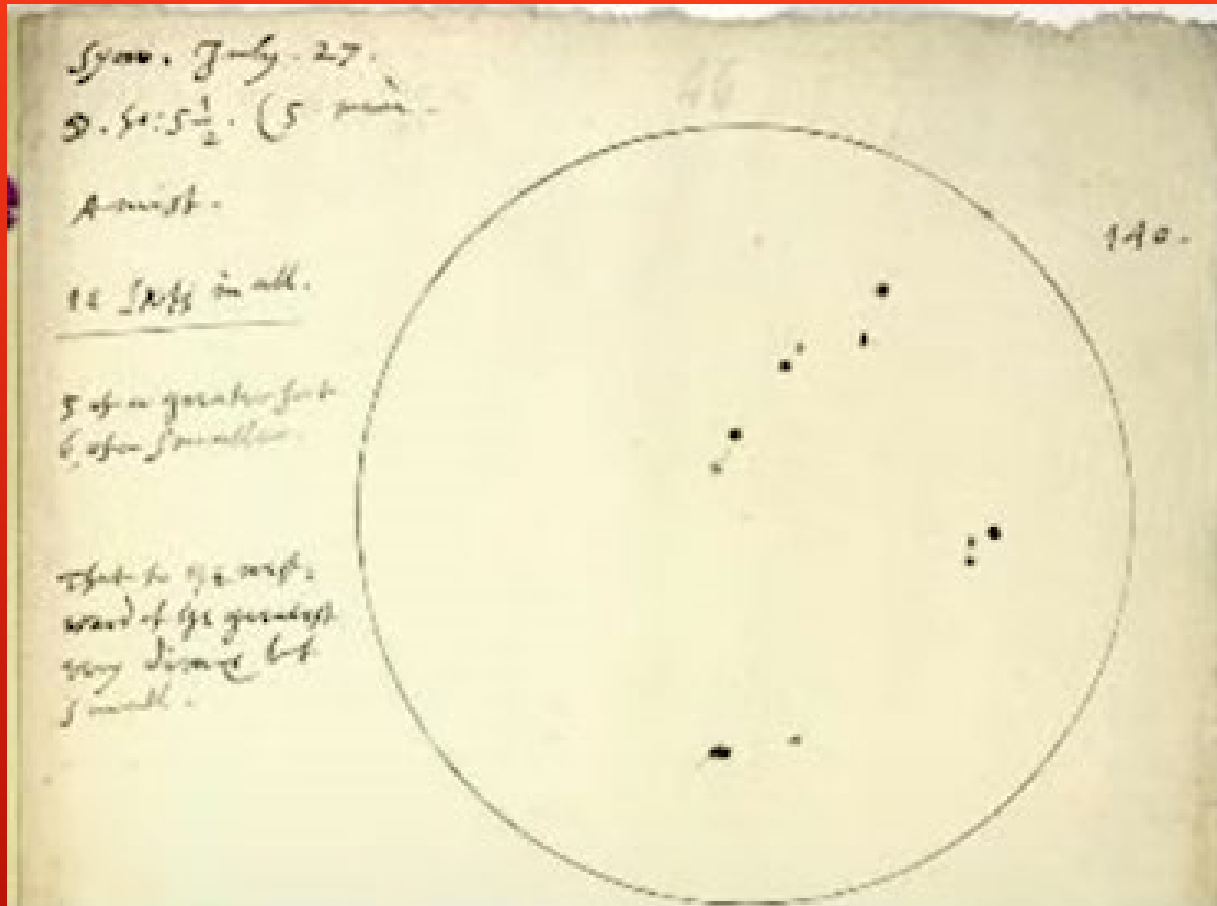 Syon. July. 27.
☉. ho: 5 1/2. (5
A mist.
in all.
5 of a greater sort
6 of a smaller.
That to the west
ward of the greatest
very but
small.
140.